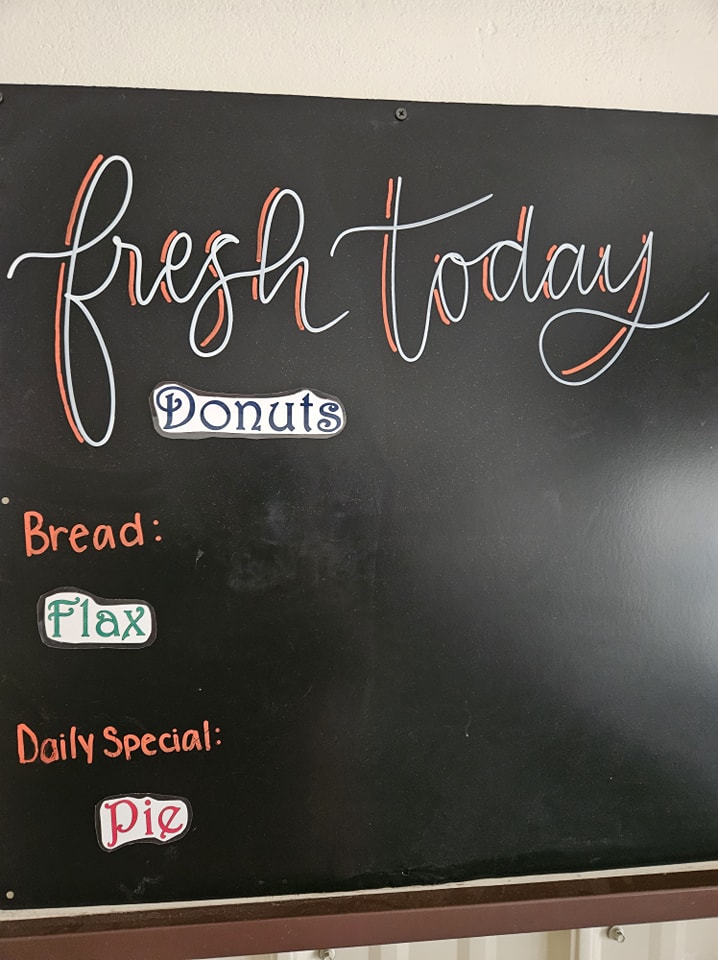 fresh today
Donuts
Bread:
Flax
Daily Special:
Pie